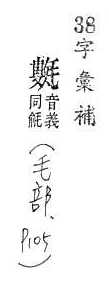 38字彙補
音義
同
(毛部、P105)